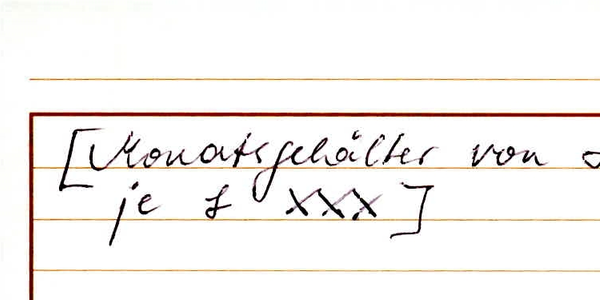 [Monatsgehälter von
je £ XXX]